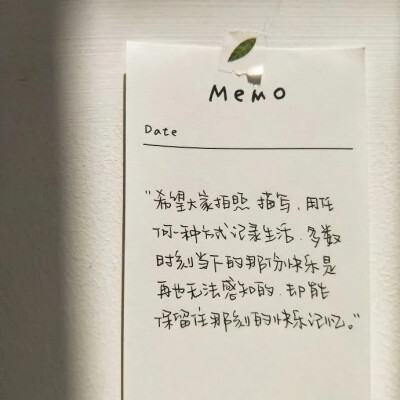 MeMO
Date
“希望大家拍照、描写、用任
何一种方式记录生活、多数
时刻当下的那份快乐是
再也无法感知的、却能
保留住那刻的快乐记忆。”